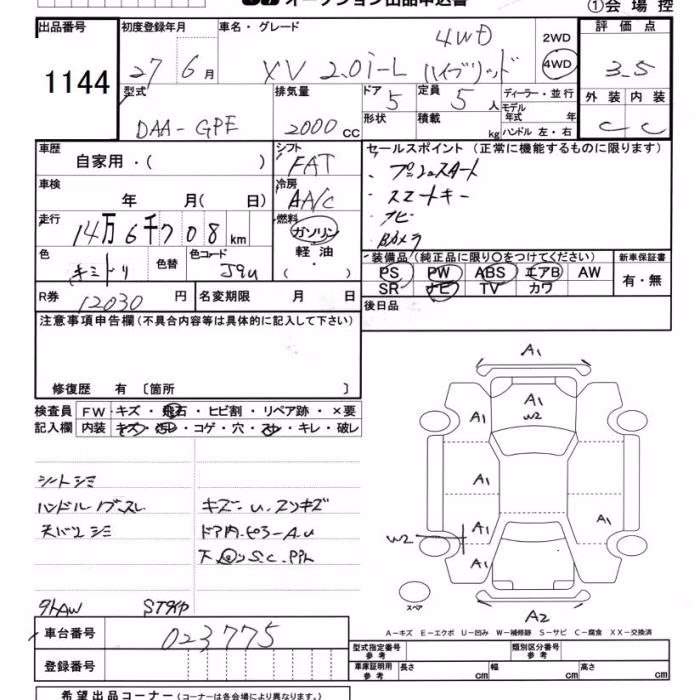 オークション出品申込書
①会場控
出品番号 1144
初度登録年月 27 6月
車名・グレード 4WD
XV 2.0i-L ハイブリッド
2WD
4WD
評価点 3.5
外装 内装
C C
型式 DAA-GPE
排気量 2000cc
ドア 5
形状
定員 5人
積載 kg
ディーラー・並行
モデル年式 年
ハンドル 左・右
車歴 自家用・( )
シフト FAT
セールスポイント(正常に機能するものに限ります)
・プッシュスタート
・スマートキー
・ナビ
・Bカメラ
車検 年 月( 日)
冷房 AA/C
走行 14万6千708km
燃料 ガソリン
軽油
( )
色
色替
色コード J9u
装備品(純正品に限り〇をつけてください)
PS PW ABS エアB AW
SR ナビ TV カワ
新車保証書
有・無
R券 12030円
名変期限 月 日
後日品
注意事項申告欄(不具合内容等は具体的に記入して下さい)
修復歴 有 〔箇所 〕
検査員記入欄
FW キズ・飛石・ヒビ割・リペア跡・×要
内装 キズ・汚レ・コゲ・穴・スレ・キレ・破レ
シートシミ
ハンドル
天バリシミ
キズ・u.
ドア内
A1
A1
A1
W2
A1
A1
A1
A1
W2
A2
スペア
A-キズ E-エクボ U-凹み W-補修跡 S-サビ C-腐食 XX-交換済
車台番号 023775
登録番号
型式指定番号 参考
類別区分番号 参考
車庫証明用 参考 長さ cm 幅 cm 高さ cm
希望出品コーナー(コーナーは各会場により異なります。)